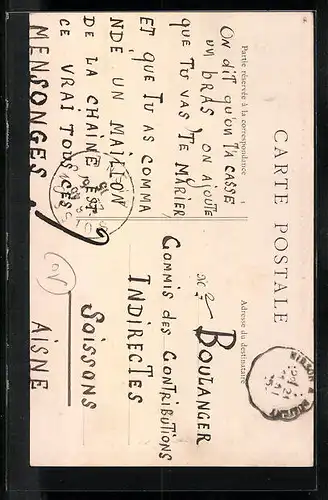 CARTE POSTALE
Partie réservée à la correspondance
Adresse du destinataire
ON DIT QU'ON T'A CASSÉ
UN BRAS, ON AJOUTE
QUE TU VAS TE MARIER
ET QUE TU AS COMMA
NDÉ UN MAILLON
DE LA CHAINE EST
CE VRAI TOUS CES
MENSONGES ?
BOULANGER
COMMIS DES CONTRIBUTIONS
INDIRECTES
SOISSONS
AISNE